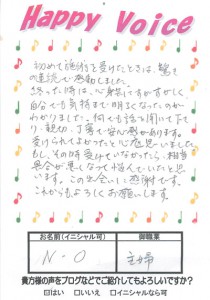 Happy Voice
初めて施術を受けたときは、驚き
の連続で感動しました。
終った時は、心身共にすがすがしく
自分でも気持まで明るくなったのが
わかりました。何でも話を聞いて下さ
り、親切、丁寧で安心感があります。
受けられてよかったと心底思いました。
もし、その時受けていなかったら、相当
具合が悪くなって悩んでいたと思
います。この出会いに感謝です。
これからもよろしくお願いします。
お名前(イニシャル可)
御職業
N・O
主婦
貴方様の声をブログなどでご紹介してもよろしいですか?
☑はい □いいえ □イニシャルなら可